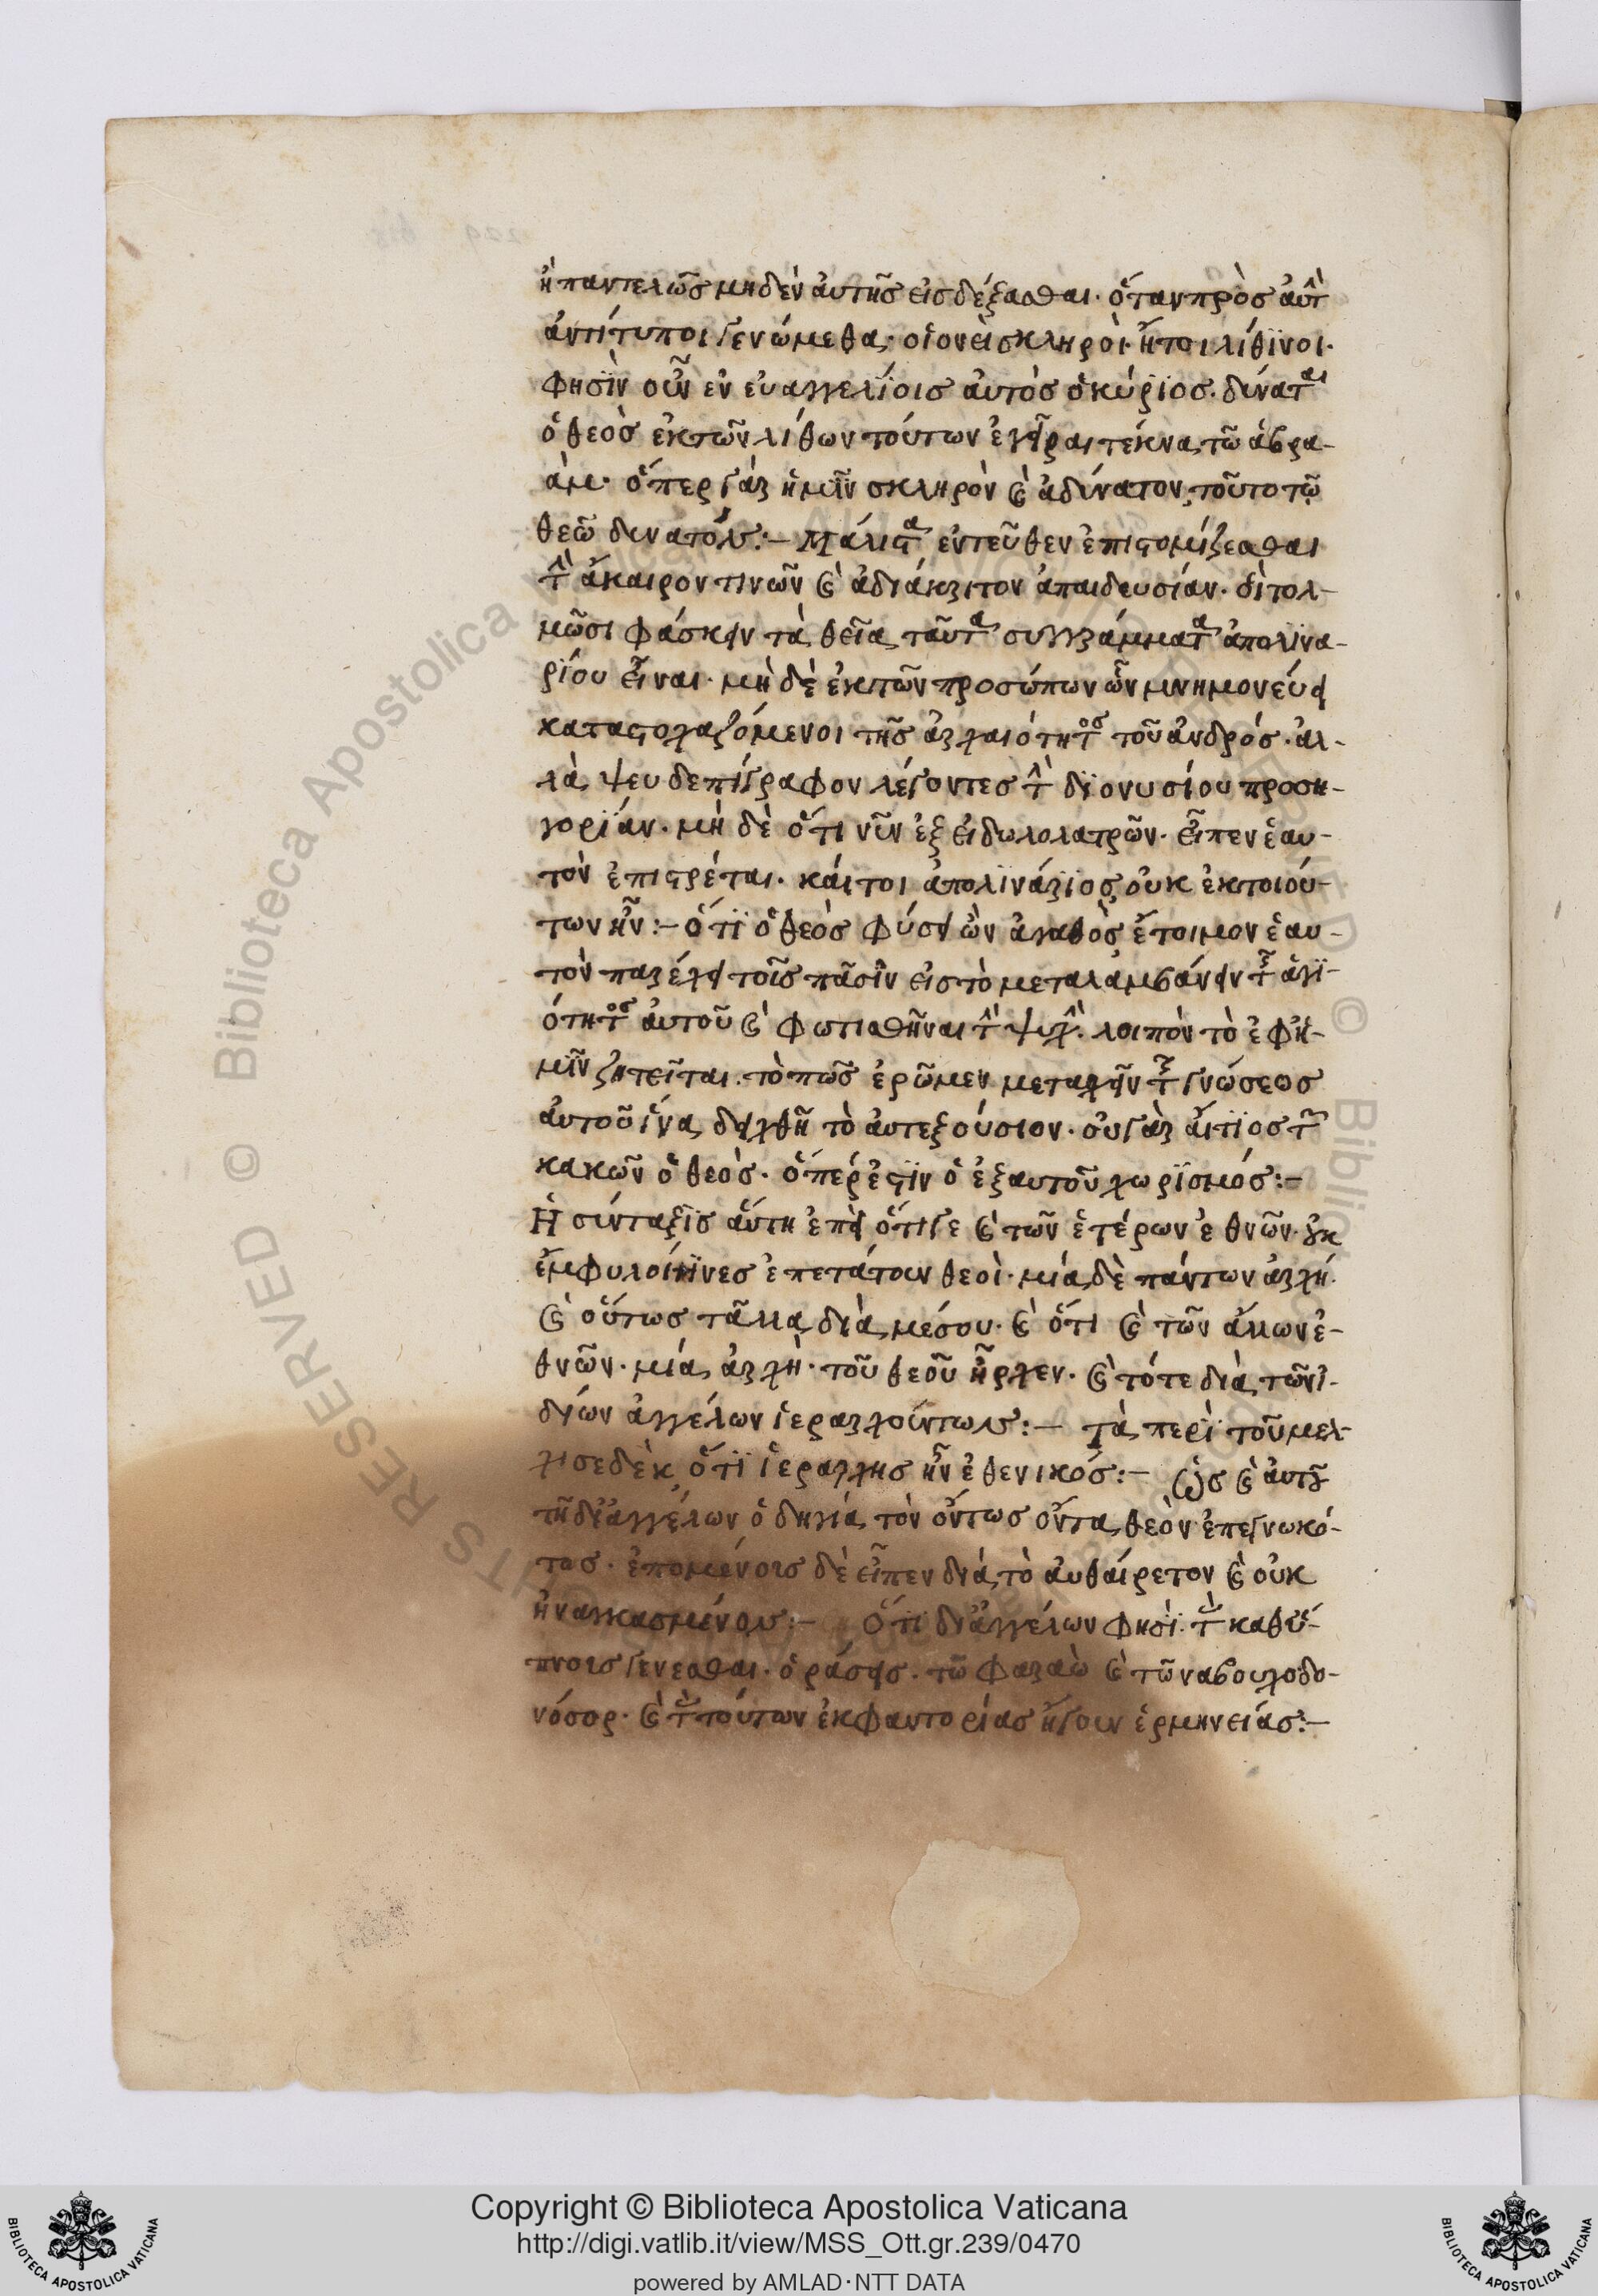 ἢ παντελῶς μηδὲν ἀυτῆς εἰσδέξασθαι· ὅταν πρὸς ἀυτὴν
ἀντίτυποι γενώμεθα· οἱονεὶ σκληροὶ· ἤτοι λίθϊνοι·
φησὶν οὖν ἐν ἐυαγγελΐοις ἀυτὸς ὁ κύρϊος· δύναται
ὁ θεὸς ἐκ τῶν λίθων τούτων ἐγεῖραι τέκνα τῶ ἀβρα-
ὰμ· ὅπερ γὰρ ἡμῖν σκληρὸν καὶ ἀδύνατον, τοῦτο τῷ
θεῶ δυνατόν:– Μάλιστα ἐντεῦθεν ἐπιστομίζεσθαι
τὴν ἄκαιρον τινῶν καὶ ἀδιάκριτον ἀπαιδευσίαν· ὁὶ τολ-
μῶσι φάσκειν τὰ θεῖα ταῦτα συγγράμματα ἀπολϊνα-
ρΐου εἶναι· μὴ δὲ ἐκ τῶν προσώπων ὧν μνημονεύει
καταστοχαζόμενοι τῆς ἀρχαιότητος τοῦ ἀνδρός· ἀλ-
λὰ ψευδεπίγραφον λέγοντες τὴν δϊονυσίου προση-
γορΐαν· μὴ δὲ ὅτι νῦν ἐξ εἰδωλολατρῶν· εἶπεν ἑαυ-
τὸν ἐπιστρέται· κάιτοι ἀπολϊνάρϊος οὐκ ἐκ τοιού-
των ἦν:– ὅτϊ ὁ θεὸς φύσει ὢν ἀγαθὸς ἕτοιμον ἑαυ-
τὸν παρέχει τοῖς πᾶσϊν εἰς τὸ μεταλαμβάνειν τῆς ἁγϊ-
ότητος ἀυτοῦ καὶ φωτισθῆναι τὴν ψυχὴν· λοιπὸν τὸ ἐφ ἡ-
μῖν ζητεῖται· τὸ πῶς ἐρῶμεν μετασχεῖν τῆς γνώσεος
ἀυτοῦ ἵνα δειχθῆ τὸ ἀυτεξούσιον· οὐ γὰρ ἄιτϊος τῶν
κακῶν ὁ θεὸς· ὅπέρ ἐστϊν ὁ ἐξ αυτοῦ χωρϊσμός:–
Ἡ σύνταξϊς ἅυτη ἐπεὶ ὅτι γε καὶ τῶν ἑτέρων ἐθνῶν· οὐκ
ἐμφυλοί τϊνες ἐπετάτουν θεοὶ· μία δὲ πάντων ἀρχή·
καὶ οὕτως τἄλλα διὰ μέσου· καὶ ὅτι καὶ τῶν ἄλλων ἐ-
θνῶν· μία ἀρχὴ· τοῦ θεοῦ ἦρχεν· καὶ τότε διὰ τῶν ἰ-
δίων ἀγγέλων ἱεραρχούντων:– Τὰ περὶ τοῦ μελ-
χισεδὲκ ὅτϊ ἱεράρχης ἦν ἐθενικός:– Ὡς καὶ ἀυτοὺς
τῆ δϊ ἀγγέλων ὁδηγία τὸν ὄντως ὄντα θεὸν ἐπεγνωκό-
τας· ἐπομένοις δὲ εἶπεν διὰ τὸ ἀυθαίρετον καὶ οὐκ
ἠναγκασμένον:– Ὅτϊ δϊ ἀγγέλων φησϊ· τὰς καθ ὕ-
πνοις γενεσθαι· ὁράσεις· τῶ φαραὼ καὶ τῶ ναβουχοδο-
νόσορ· καὶ τὰς τούτων ἐκφαντορίας ἤγουν ἑρμηνείας:–
Copyright © Biblioteca Apostolica Vaticana
http://digi.vatlib.it/view/MSS_Ott.gr.239/0470
powered by AMLAD·NTT DATA